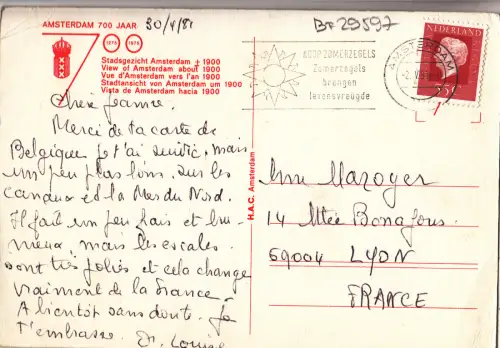 AMSTERDAM 700 JAAR
30/4/81
BF29597
1275
1975
Stadsgezicht Amsterdam ± 1900
View of Amsterdam about 1900
Vue d'Amsterdam vers l'an 1900
Stadtansicht von Amsterdam um 1900
Vista de Amsterdam hacia 1900
KOOP ZOMERZEGELS
Zomerzegels
brengen
levensvreugde
AMSTERDAM
Chère Jeanne.
Merci de ta carte de
Belgique je t'ai suivie, mais
un peu plus loin. sur les
canaux et la Mer du Nord.
Il fait un peu frais et bru-
meux, mais les escales
sont très jolies et cela change
vraiment de la France.
A bientôt sans doute. Je
t'embrasse. Louise
H.A.C. Amsterdam
Mme Mazoyer
14 Mtée Bonafous.
69004 LYON
FRANCE